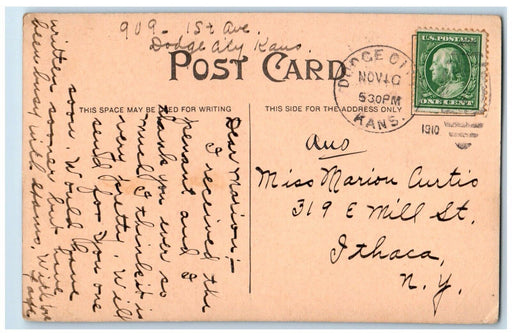 909 - 1st Ave.
Dodge City Kans.
POST CARD
THIS SPACE MAY BE USED FOR WRITING
THIS SIDE FOR THE ADDRESS ONLY
Dear Marion:-
I received the
penant and I
thank you ever so
much. I think it is
very pretty. Will
send for you one
soon. Would have
written sooner but have
been busy with exams. Will be
DODGE CITY
NOV 10
530PM
KANS.
1910
U.S. POSTAGE
ONE CENT
Ans
Miss Marion Curtis
319 E Mill St.
Ithaca,
N.Y.